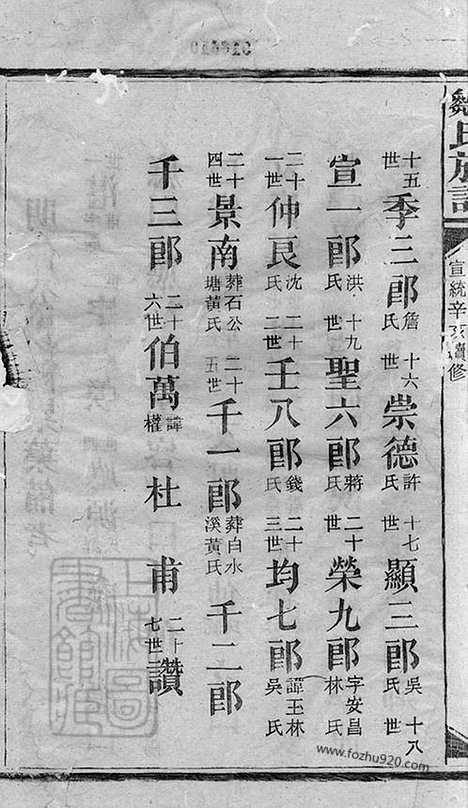 鄒氏族譜 宣統辛亥續修
十五世 季三郎 詹氏 十六世 崇德 許氏 十七世 顯三郎 吳氏 十八世
宣一郎 洪氏 十九世 聖六郎 蔣氏 二十世 榮九郎 字安昌林氏
二十一世 仲良 沈氏 二十二世 壬八郎 錢氏 二十三世 均七郎 諱玉林吳氏
二十四世 景南 葬石公塘黃氏 二十五世 千一郎 葬白水溪黃氏 千二郎
千三郎 二十六世 伯萬 諱權 杜甫 二十七世 讚
上海圖書館藏
www.fozhu920.com